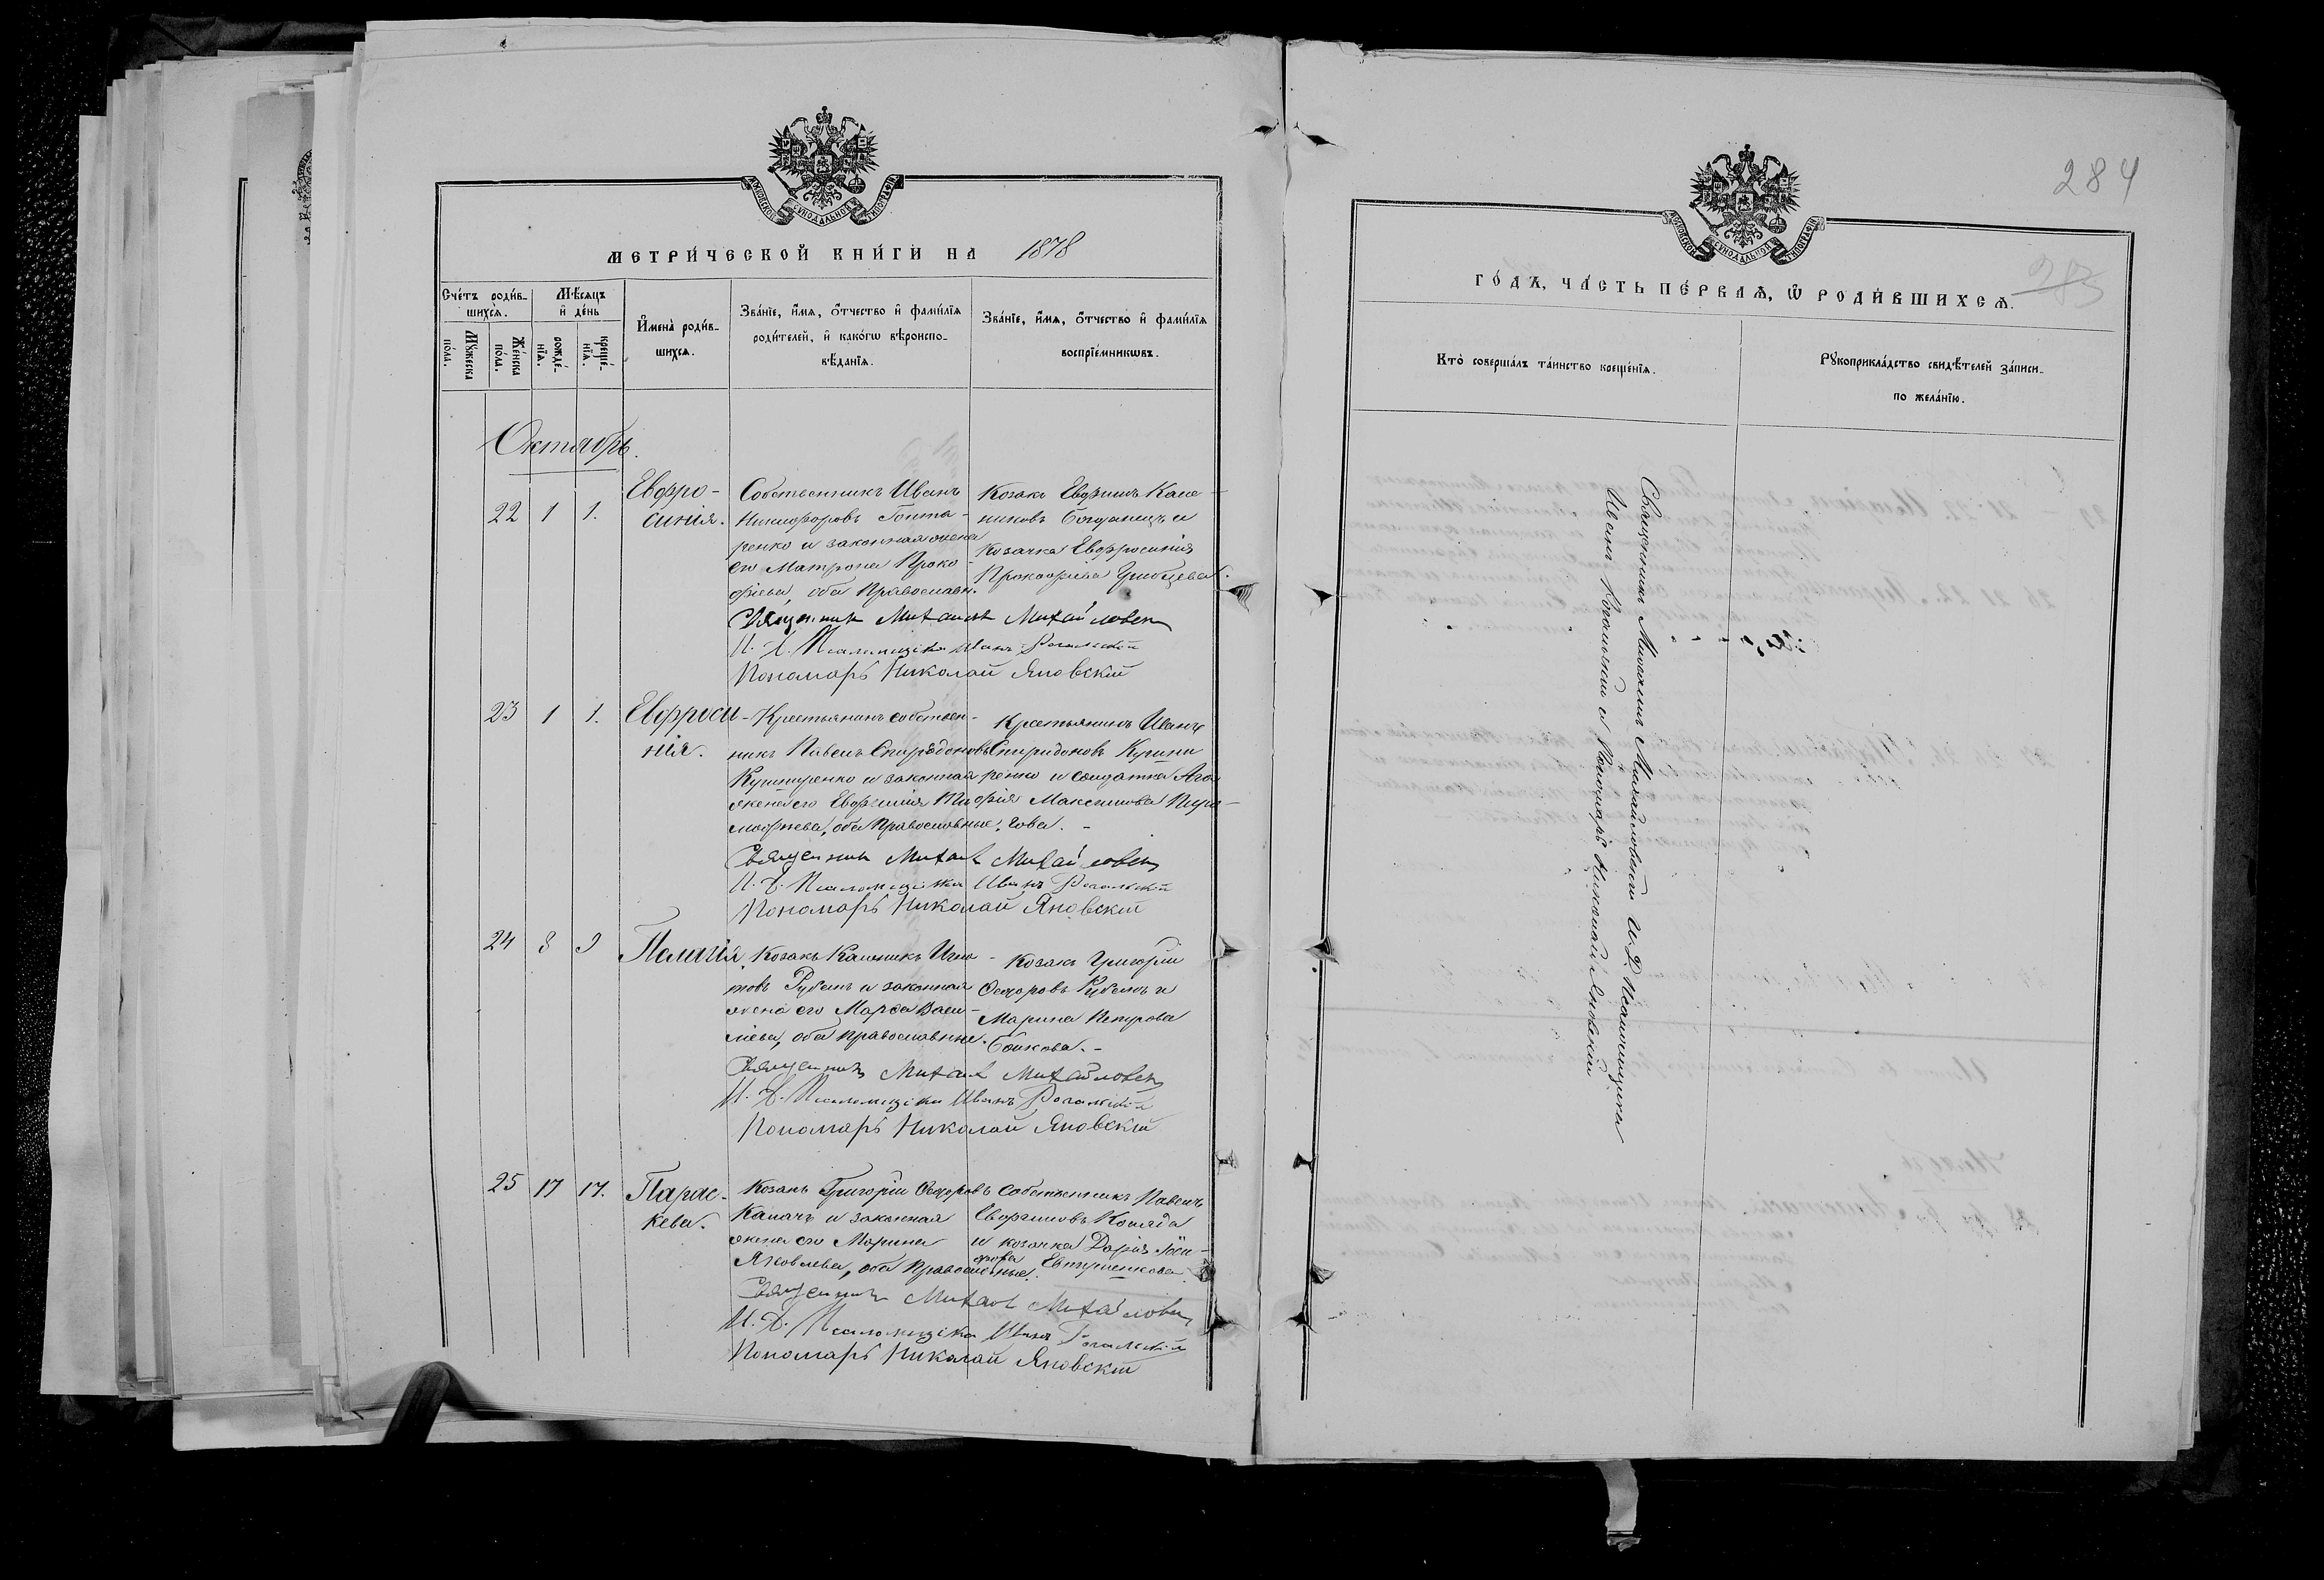 МОСКОВСКОЙ СѴНОДАЛЬНОЙ ТИПОГРАФІИ
МЕТРИ́ЧЕСКОЙ КНИ́ГИ НА 1878
Сче́тъ роди́в-
шихсѧ.
Мѣ́сѧцъ
и҆ де́нь
Мꙋ́жеска
по́ла.
Же́нска
по́ла.
рожде́-
нїѧ.
креще́-
нїѧ.
И҆мена̀ роди́в-
шихсѧ.
Зва́нїе, и҆́мѧ, ѻ҆́тчество и҆ фами́лїѧ
роди́телей, и҆ како́гѡ вѣроиспо-
вѣ́данїѧ.
Зва́нїе, и҆́мѧ, ѻ҆́тчество и҆ фами́лїѧ
воспрїе́мникѡвъ.
Октябрь.
22 1 1.
Евфро-
синія.
Собственникъ Иванъ
Никифоровъ Гонта-
ренко и законная жена
его Матрона Проко-
фіева, оба Православн.
Козакъ Евфимъ Кале-
никовъ Богданецъ и
Козачка Евфросинія
Прокофіева
Священникъ Михаилъ Михайловскій
И. Д. Псаломщика Иванъ Рогальскій
Пономарь Николай Яновскій
23 1 1.
Евфроси-
нія.
Крестьянинъ собствен-
никъ Павелъ Спиридоновъ
и законная
жена его Евфимія Ти-
мофеева, оба Православные.
Крестьянинъ Иванъ
Спиридоновъ
ренко и солдатка Ага-
фія Максимова
Священникъ Михаилъ Михайловскій
И. Д. Псаломщика Иванъ Рогальскій
Пономарь Николай Яновскій
24 8 9
Пелагія.
Козакъ Каленикъ Игна-
товъ Рубанъ и законная
жена его Марѳа Васи-
ліева, оба православные.
Козакъ Григорій
Ѳедоровъ Рубанъ и
Марина Петрова
Бойкова.
Священникъ Михаилъ Михайловскій
И. Д. Псаломщика Иванъ Рогальскій
Пономарь Николай Яновскій
25 17 17.
Парас-
кева.
Козакъ Григорій Ѳедоровъ
Капачъ и законная
жена его Марина
Яковлева, оба Православные.
Собственникъ Павелъ
Евфимовъ Коляда
и козачка Дарія Іоси-
фова Евтушенкова
Священникъ Михаилъ Михайловскій
И. Д. Псаломщика Иванъ Рогальскій
Пономарь Николай Яновскій
284
МОСКОВСКОЙ СѴНОДАЛЬНОЙ ТИПОГРАФІИ
ГО́ДЪ, ЧА́СТЬ ПЕ́РВАѦ, Ѡ҆ РОДИ́ВШИХСѦ.
Кто̀ соверша́лъ та́инство креще́нїѧ.
Рꙋкоприкла́дство свидѣ́телей за́писи
по жела́нїю.
Священникъ Михаилъ Михайловскій И. Д. Псаломщика
Иванъ Рогальскій и Пономарь Николай Яновскій